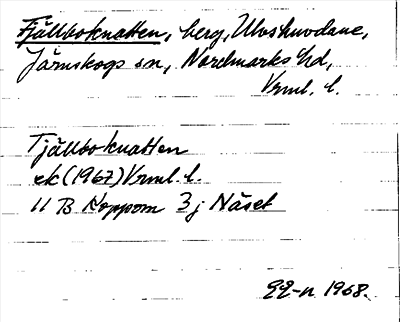 Fjällboknatten, berg, Ulvshuvdane,
Järnskogs sn, Nordmarks hd,
Vrml. l.
Tjällboknatten
ek (1967) Vrml. l.
11 B Koppom 3 j Näset
1968.